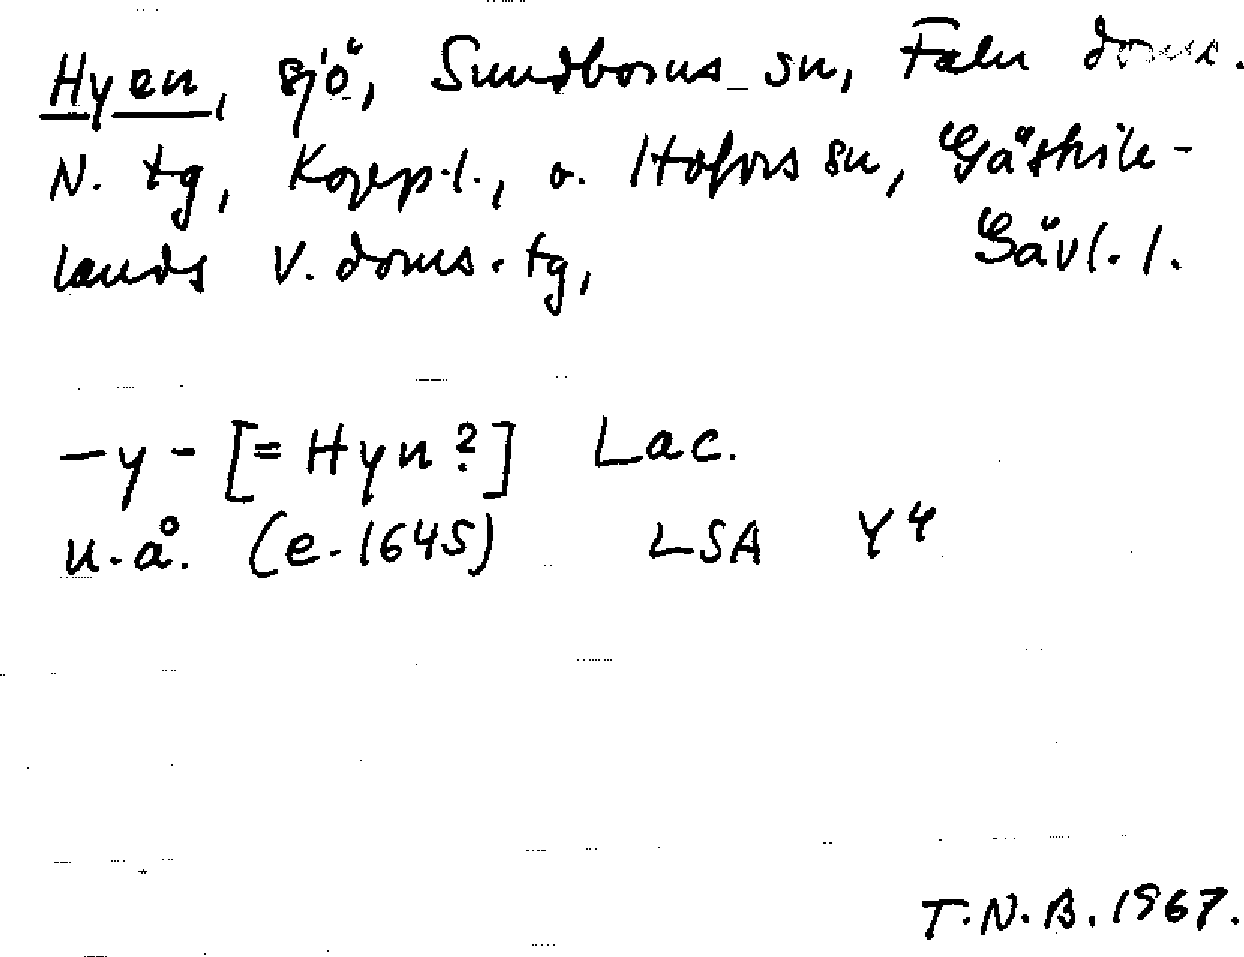 Hyen, sjö, Sundborns sn, Falu doms.
N. tg, Kopp.l., o. Hofors sn, Gästrik-
lands V. doms.tg, Gävl.l.
-y- [= Hyn?] Lac.
u.å. (e.1645) LSA Y4
T.N.B. 1967.